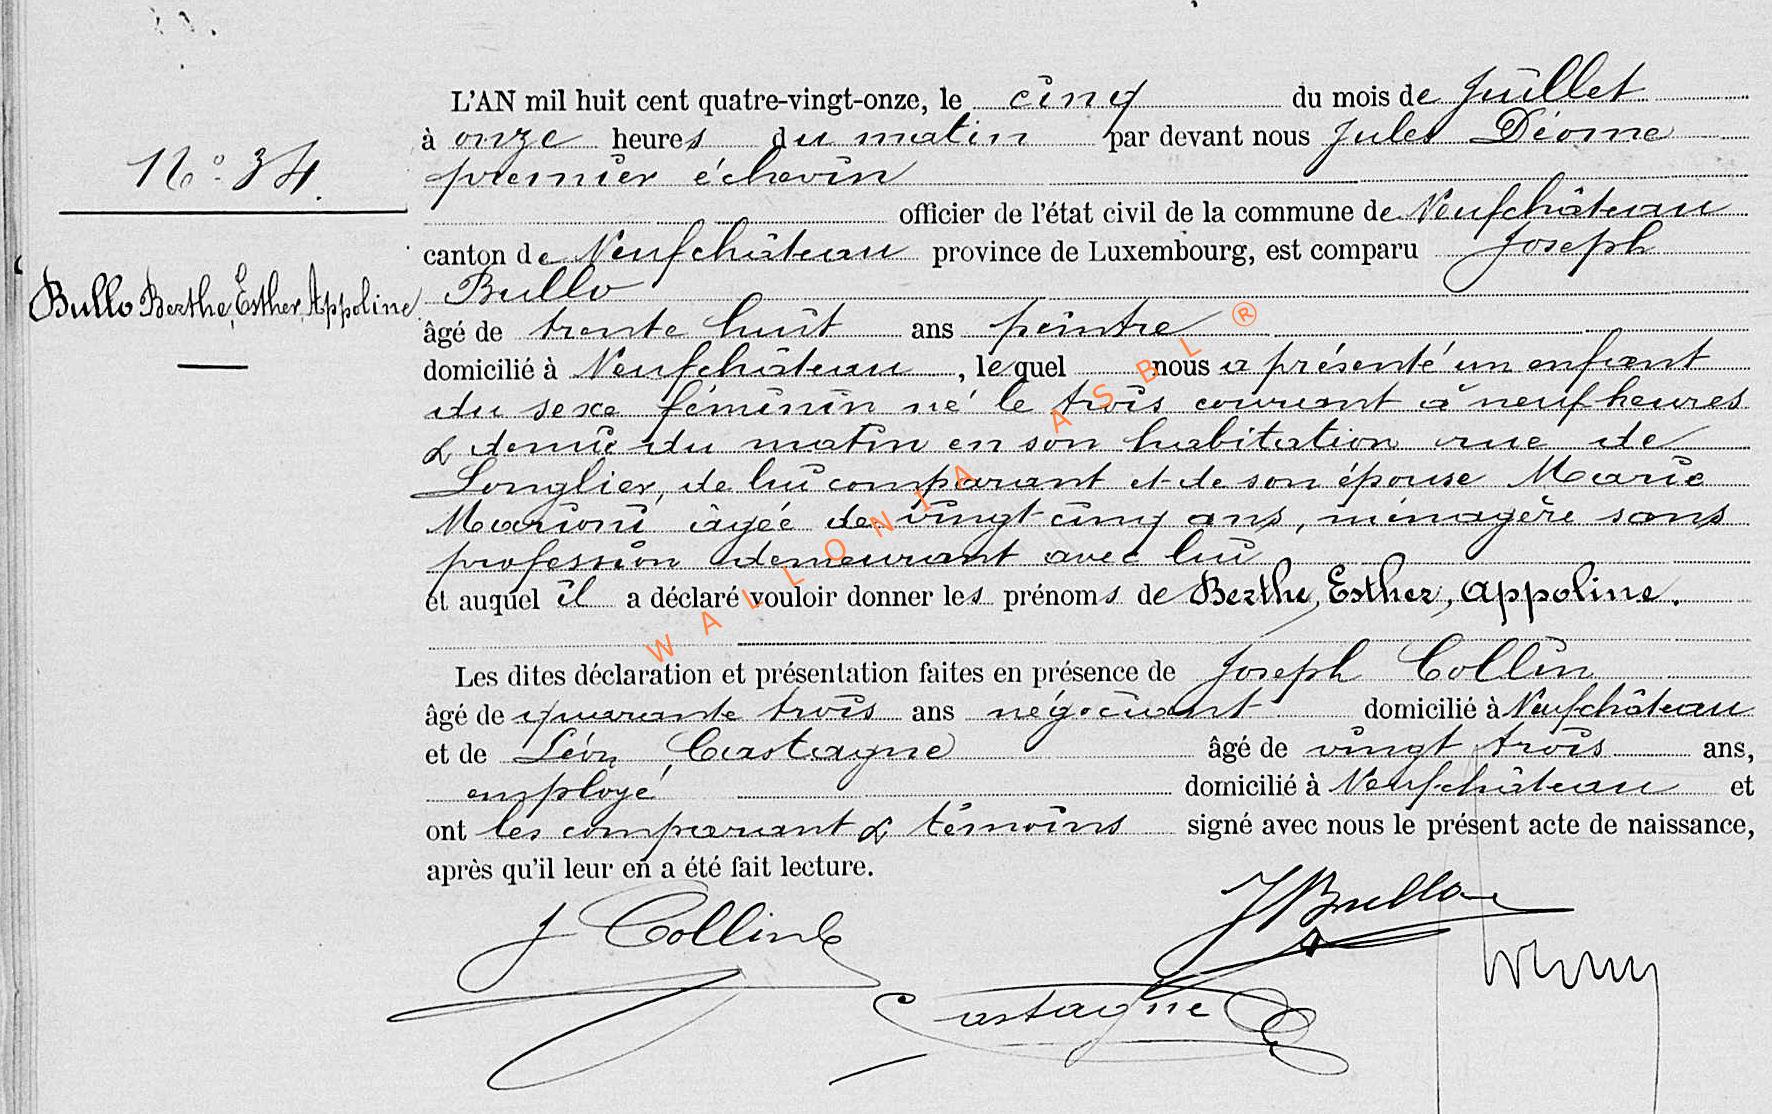 L'AN mil huit cent quatre-vingt-onze, le cinq du mois de Juillet
à onze heures du matin par devant nous Jules Déome
premier échevin
officier de l'état civil de la commune de Neufchâteau
canton de Neufchâteau province de Luxembourg, est comparu Joseph
Bullo
âgé de trente huit ans peintre
domicilié à Neufchâteau, lequel nous a présenté un enfant
du sexe féminin né le trois courant à neuf heures
& demie du matin en son habitation rue de
Longlier, de lui comparant et de son épouse Marie
Marioni âgée de vingt cinq ans, ménagère sans
profession demeurant avec lui
et auquel il a déclaré vouloir donner les prénoms de Berthe, Esther, Appoline.
Les dites déclaration et présentation faites en présence de Joseph Collin
âgé de quarante trois ans négociant domicilié à Neufchâteau
et de Léon Castagne âgé de vingt trois ans,
employé domicilié à Neufchâteau et
ont les comparant & témoins signé avec nous le présent acte de naissance,
après qu'il leur en a été fait lecture.
N° 34.
Bullo Berthe, Esther, Appoline.
J Collin
J Bullo
Castagne
WALLONIA ASBL ®